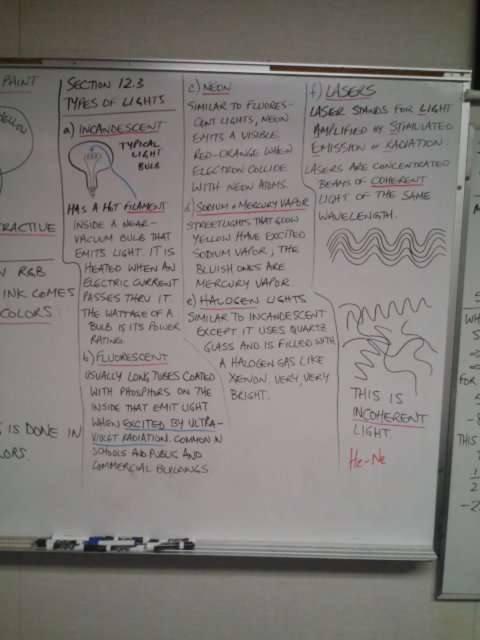 PAINT
YELLOW
RACTIVE
RGB
INK COMES
COLORS:
IS DONE IN
ORS.
SECTION 12.3
TYPES OF LIGHTS
a) INCANDESCENT
TYPICAL
LIGHT
BULB
HAS A HOT FILAMENT
INSIDE A NEAR-
VACUUM BULB THAT
EMITS LIGHT. IT IS
HEATED WHEN AN
ELECTRIC CURRENT
PASSES THRU IT.
THE WATTAGE OF A
BULB IS ITS POWER
RATING.
b) FLUORESCENT
USUALLY LONG TUBES COATED
WITH PHOSPHORS ON THE
INSIDE THAT EMIT LIGHT
WHEN EXCITED BY ULTRA-
VIOLET RADIATION. COMMON IN
SCHOOLS AND PUBLIC AND
COMMERCIAL BUILDINGS.
c) NEON
SIMILAR TO FLUORES-
CENT LIGHTS, NEON
EMITS A VISIBLE
RED-ORANGE WHEN
ELECTRON COLLIDE
WITH NEON ATOMS.
d) SODIUM + MERCURY VAPOR
STREETLIGHTS THAT GLOW
YELLOW HAVE EXCITED
SODIUM VAPOR; THE
BLUISH ONES ARE
MERCURY VAPOR.
e) HALOGEN LIGHTS
SIMILAR TO INCANDESCENT
EXCEPT IT USES QUARTZ
GLASS AND IS FILLED WITH
A HALOGEN GAS LIKE
XENON. VERY, VERY
BRIGHT.
f) LASERS
LASER STANDS FOR LIGHT
AMPLIFIED BY STIMULATED
EMISSION OF RADIATION.
LASERS ARE CONCENTRATED
BEAMS OF COHERENT
LIGHT OF THE SAME
WAVELENGTH.
THIS IS
INCOHERENT
LIGHT.
He-Ne
WH
FOR
THIS